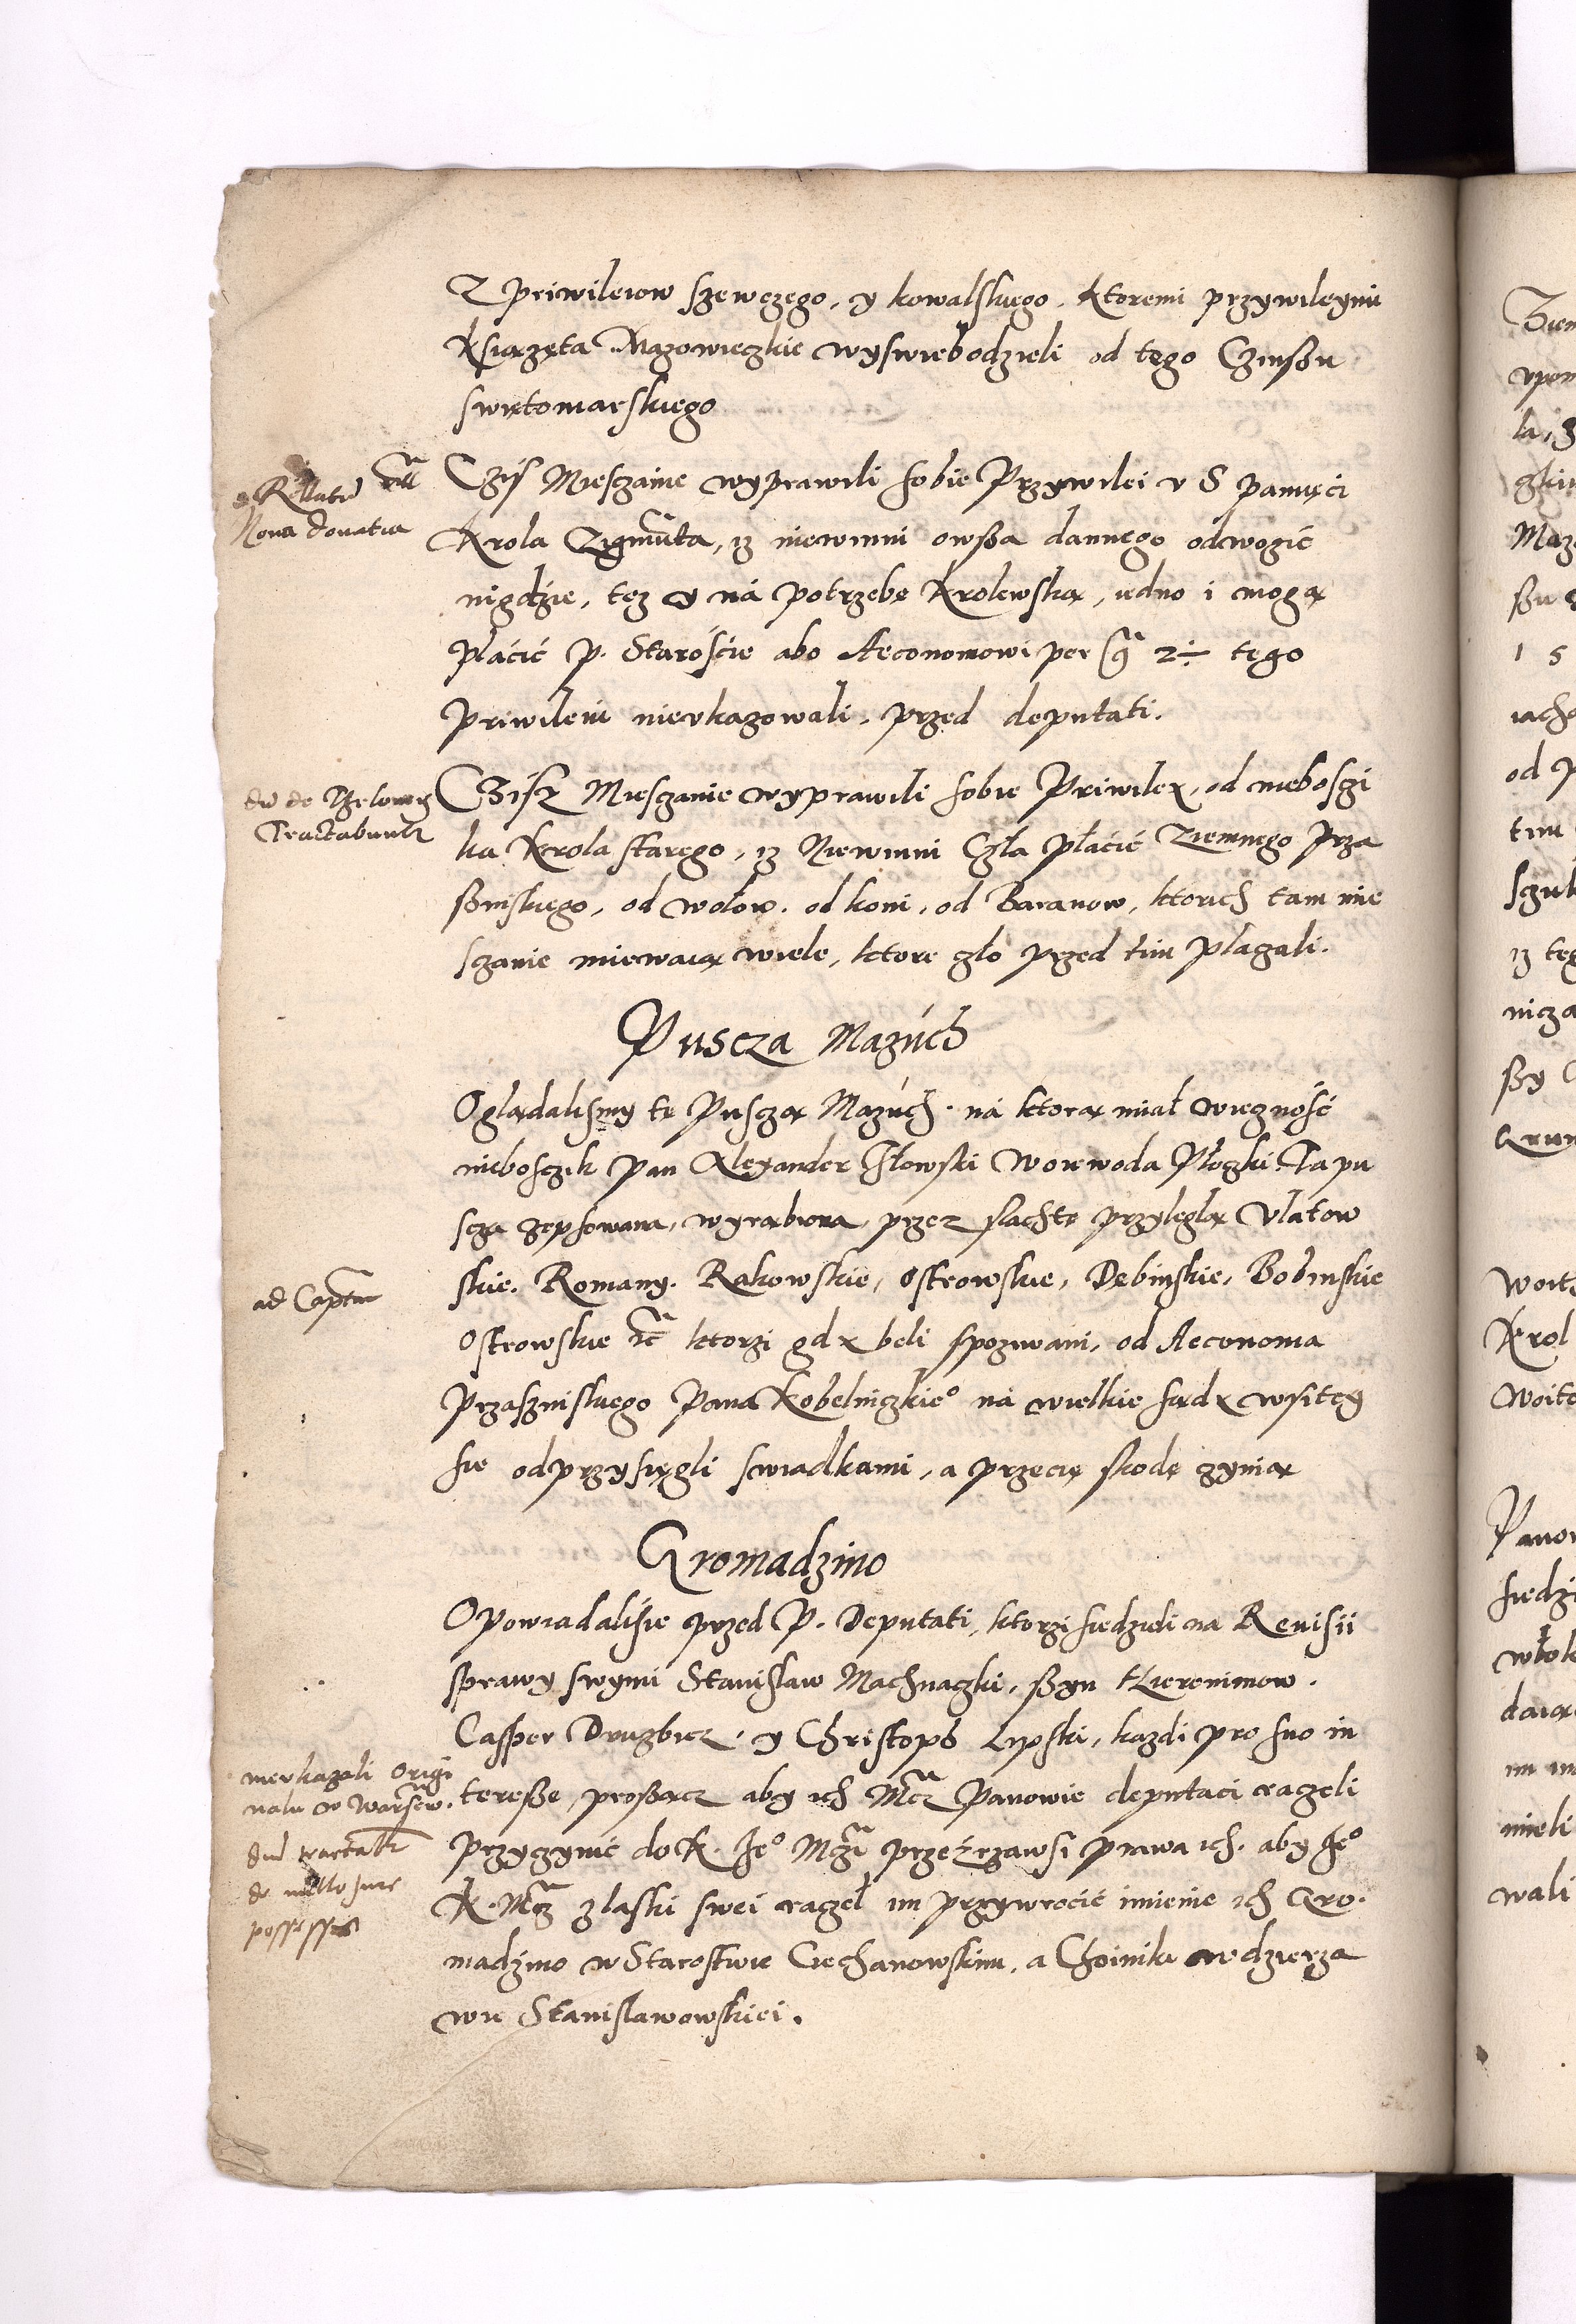 Z priwileiow szewczego, y kowalskiego, ktoremi przywileymi
Ksiązęta Mazowieczkie wyswiebodzieli od tego Czinßu
swiętomarskiego
Nova donatia
Cziś Miesczanie wyprawili sobie Przywilei v S pamięci
Krola Zigmũta, iz niewinni owßa dannego odwozić
nigdzie, tez y ná potrzebę Krolewską, iedno i mogą
płácić p. Stárośćie abo Aeconomowi per gr̃ 2÷ tego
priwileiu nieukazowali, przed deputati.
Tractabuntr
Cziß Miesczanie wyprawili sobie Priwilex, od nieboszi
ka Krola starego, iz Niewinni Czła płácić Ziemnego Prza
ßniskiego, od wołow, od koni, od Baranow, ktorich tam mie
szanie miewaią wiele, ktore czło przed tim płaczali.
Puscza Mazúch
Oglądalismy tę Pusczą Mazúch. ná ktorą miał wiecznośc
nieboszcik pan Alexander Iłowski Woiewoda Płoczki. Ta pu
scza zepsowana, wyrąbiona, przez slachtę przyległą Vlatow
skie. Romany. Rakowskie, Ostrowskie, Dębinskie, Bobinskie
ad Captur
Ostrowskie etc̃ ktorzi gdx beli spozwani, od Aeconoma
Przaszniskiego Pana Kobelniczkieº ná wielkie sądx wsiteg
sie odprzysięgli swiadkami, a przecię skodę czynią
Gromadzino
Opowiadalisie przed P. Deputati, ktorzi siedzieli na Revisii
sprawy swymi Stanislaw Machnaczki, ßyn Hieronimow.
Casper Druzbicz, y Christoph Lyoski, kazdi pro suo in
nieukazali origi
nalu w Warsew.
tereße, proßącz aby ich Mcz̃ Panowie deputaci raczeli
przyczynić do K. Jeº Mczi przeźrzawsi prawa ich. aby Jeº
de nullo jure
K. Mcz złaski swei raczeł im przywrocić imienie ich Gro.
possessor
madzino w Starostwie Ciechanowskim, a Choiniki w dzierza
wie Stanislawowskiei.